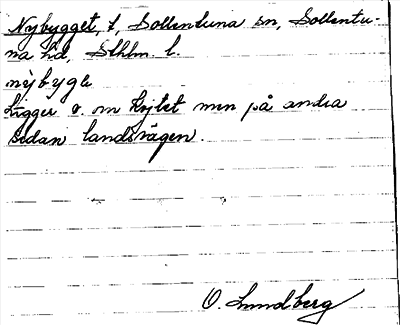 Nybygget, t, Sollentuna sn, Sollentu-
na hd, Sthlm l.
nỳbyge
Ligger v. om Höjlet men på andra
sidan landsvägen.
O. Lundberg